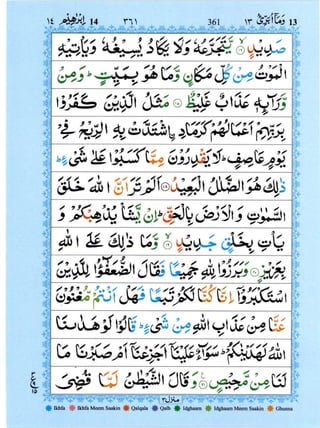 ١٤ اِبْرٰهِيْم 14 ٣٦١ 361 ١٣ وَمَآ اُبَرِّئُ 13
صَدِيْدٍ ۙ يَّتَجَرَّعُهٗ وَلَا يَكَادُ يُسِيْغُهٗ وَيَاْتِيْهِ
الْمَوْتُ مِنْ كُلِّ مَكَانٍ وَّمَا هُوَ بِمَيِّتٍ ؕ وَمِنْ
وَّرَآئِهٖ عَذَابٌ غَلِيْظٌ مَثَلُ الَّذِيْنَ كَفَرُوْا
بِرَبِّهِمْ اَعْمَالُهُمْ كَرَمَادِ اِشْتَدَّتْ بِهِ الرِّيْحُ فِيْ
يَوْمٍ عَاصِفٍ ؕ لَا يَقْدِرُوْنَ مِمَّا كَسَبُوْا عَلٰى شَيْءٍ ؕ
ذٰلِكَ هُوَ الضَّلٰلُ الْبَعِيْدُ اَلَمْ تَرَ اَنَّ اللّٰهَ خَلَقَ
السَّمٰوٰتِ وَالْاَرْضَ بِالْحَقِّ ؕ اِنْ يَّشَاْ يُذْهِبْكُمْ وَ
يَاْتِ بِخَلْقٍ جَدِيْدٍ ۙ وَّمَا ذٰلِكَ عَلَى اللّٰهِ
بِعَزِيْزٍ وَبَرَزُوْا لِلّٰهِ جَمِيْعًا فَقَالَ الضُّعَفٰٓؤُا لِلَّذِيْنَ
اسْتَكْبَرُوْۤا اِنَّا كُنَّا لَكُمْ تَبَعًا فَهَلْ اَنْتُمْ مُّغْنُوْنَ
عَنَّا مِنْ عَذَابِ اللّٰهِ مِنْ شَيْءٍ ؕ قَالُوْا لَوْ هَدٰىنَا
اللّٰهُ لَهَدَيْنٰكُمْ ؕ سَوَآءٌ عَلَيْنَاۤ اَجَزِعْنَاۤ اَمْ صَبَرْنَا مَا
لَنَا مِنْ مَّحِيْصٍ وَقَالَ الشَّيْطٰنُ لَمَّا قُضِيَ
منزل٣
Ikhfa Ikhfa Meem Saakin Qalqala Qalb Idghaam Idghaam Meem Saakin Ghunna